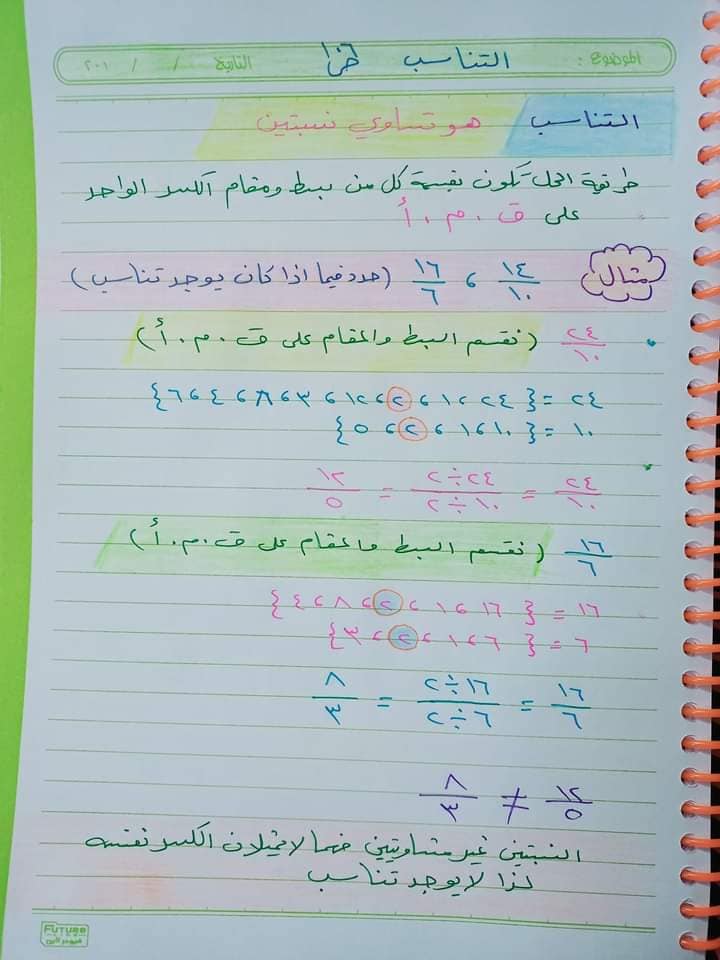 الموضوع : التناسب التاريخ / / ٢٠١
التناسب هو تساوي نسبتين
طريقة الحل تكون بقسمة كل من بسط ومقام الكسر الواحد
على ق . م . أ
مثال ١٤/١٠ ، ١٦/٦ (حدد فيما اذا كان يوجد تناسب)
٢٤/١٠ (نقسم البسط والمقام على ق . م . أ)
٢٤ = {٢٤ ، ١ ، ٢ ، ١٢ ، ٣ ، ٨ ، ٤ ، ٦}
١٠ = {١٠ ، ١ ، ٢ ، ٥}
٢٤/١٠ = ٢٤÷٢/١٠÷٢ = ١٢/٥
١٦/٦ (نقسم البسط والمقام على ق . م . أ)
١٦ = {١٦ ، ١ ، ٢ ، ٨ ، ٤}
٦ = {٦ ، ١ ، ٢ ، ٣}
١٦/٦ = ١٦÷٢/٦÷٢ = ٨/٣
١٢/٥ ≠ ٨/٣
النسبتين غير متساويتين فهما لا يمثلان الكسر نفسه
لذا لا يوجد تناسب
FUTURE